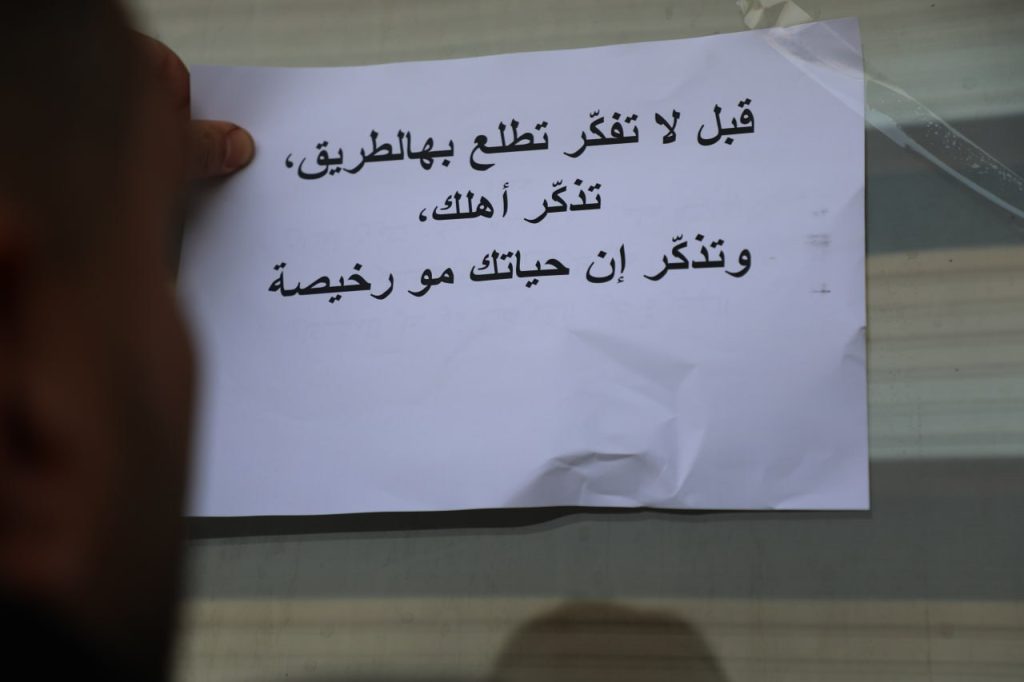 قبل لا تفكّر تطلع بهالطريق،
تذكّر أهلك،
وتذكّر إن حياتك مو رخيصة